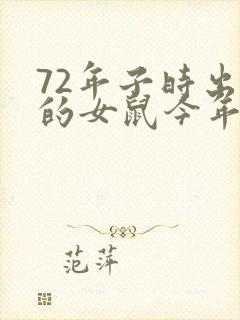 72年子时出
的女鼠今年
范萍